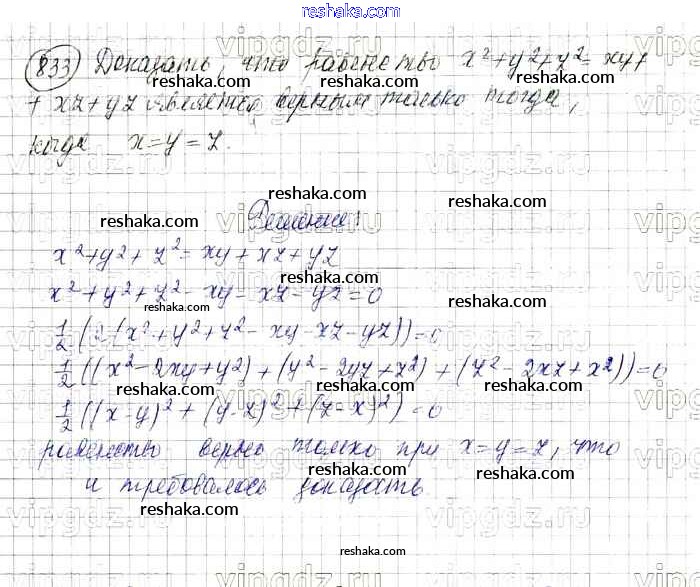 reshaka.com
833) Доказать, что равенство x²+y²+z²=xy+
+ xz+yz является верным только тогда,
когда x=y=z.
Решение:
x²+y²+z²=xy+xz+yz
x²+y²+z²-xy-xz-yz=0
1/2(2(x²+y²+z²-xy-xz-yz))=0
1/2((x²-2xy+y²)+(y²-2yz+z²)+(z²-2xz+x²))=0
1/2((x-y)²+(y-z)²+(z-x)²)=0
равенство верно только при x=y=z, что
и требовалось доказать
reshaka.com